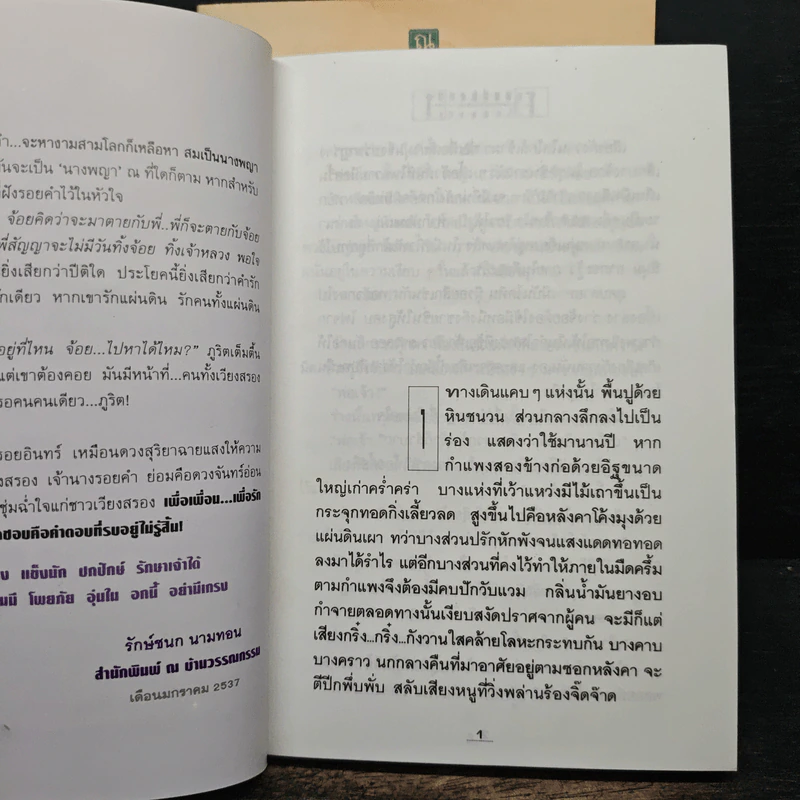 ณ
...จะหางามสามโลกก็เหลือหา สมเป็นนางพญา
จะเป็น ‘นางพญา’ ณ ที่ใดก็ตาม หากสำหรับ
ฝังรอยคำไว้ในหัวใจ
จ้อยคิดว่าจะมาตายกับพี่..พี่ก็จะตายกับจ้อย
พี่สัญญาจะไม่มีวันทิ้งจ้อย ทิ้งเจ้าหลวง พอใจ
ยิ่งเสียกว่าปีติใด ประโยคนี้ยิ่งเสียกว่าคำรัก
เดียว หากเขารักแผ่นดิน รักคนทั้งแผ่นดิน
อยู่ที่ไหน จ้อย...ไปหาได้ไหม?” ภูริตเต็มตื้น
แต่เขาต้องคอย มันมีหน้าที่...คนทั้งเวียงสรอง
รอคนคนเดียว...ภูริต!
รอยอินทร์ เหมือนดวงสุริยาฉายแสงให้ความ
สรอง เจ้านางรอยคำ ย่อมคือดวงจันทร์อ่อน
ชุ่มฉ่ำใจแก่ชาวเวียงสรอง เพื่อเพื่อน...เพื่อรัก
ชอบคือคำตอบที่รบอยู่ไม่รู้สิ้น!
แข็งนัก ปกปักษ์ รักษาเจ้าได้
โพยภัย อุ่นใน อกนี้ อย่ามีเกรง
รักษ์ชนก นามทอน
สำนักพิมพ์ ณ บ้านวรรณกรรม
เดือนมกราคม 2537
๑
ทางเดินแคบๆ แห่งนั้น พื้นปูด้วย
หินชนวน ส่วนกลางลึกลงไปเป็น
ร่อง แสดงว่าใช้มานานปี หาก
กำแพงสองข้างก่อด้วยอิฐขนาด
ใหญ่เก่าคร่ำคร่า บางแห่งที่เว้าแหว่งมีไม้เถาขึ้นเป็น
กระจุกทอดกิ่งเลี้ยวลด สูงขึ้นไปคือหลังคาโค้งมุงด้วย
แผ่นดินเผา ทว่าบางส่วนปรักหักพังจนแสงแดดทอทอด
ลงมาได้รำไร แต่อีกบางส่วนที่คงไว้ทำให้ภายในมืดครึ้ม
ตามกำแพงจึงต้องมีคบปักวับแวม กลิ่นน้ำมันยางอบ
กำจายตลอดทางนั้นเงียบสงัดปราศจากผู้คน จะมีก็แต่
เสียงกริ๋ง...กริ๋ง กังวานใสคล้ายโลหะกระทบกัน บางคาบ
บางคราว นกกลางคืนที่มาอาศัยอยู่ตามซอกหลังคา จะ
ตีปีกพึ่บพั่บ สลับเสียงหนูที่วิ่งพล่านร้องจี๊ดจ๊าด
1